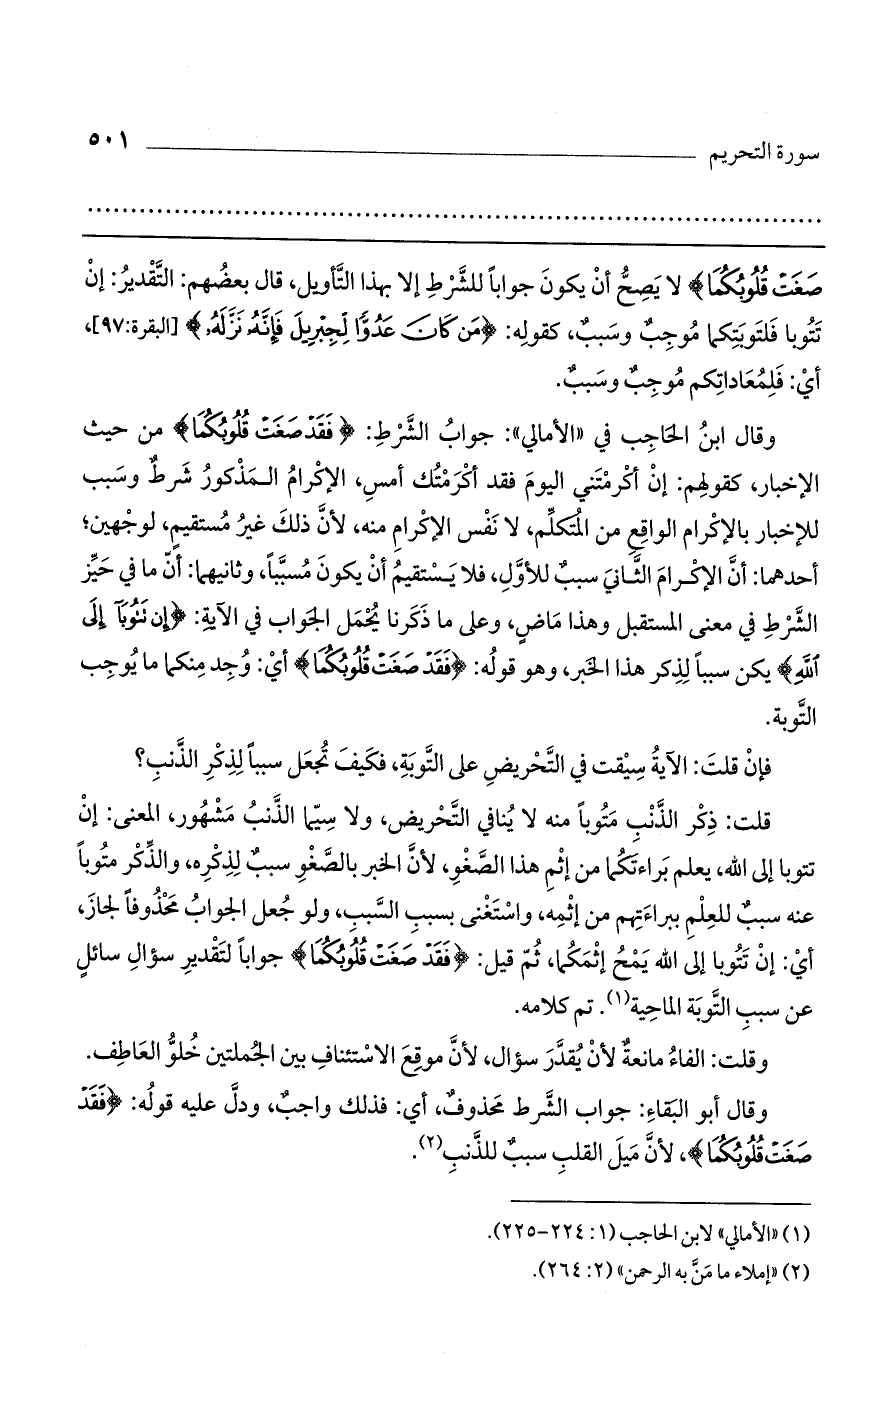 سورة التحريم ٥٠١
صَغَتْ قُلُوبُكُمَا﴾ لا يَصِحُّ أنْ يكونَ جواباً للشَّرْطِ إلا بهذا التَّأويل، قال بعضُهم: التَّقْديرُ: إنْ
تَتُوبا فَلتَوبَتِكما مُوجِبٌ وسَببٌ، كقولِه: ﴿مَن كَانَ عَدُوًّا لِّجِبْرِيلَ فَإِنَّهُ نَزَّلَهُ﴾ [البقرة:٩٧]،
أيْ: فَلِمُعَاداتِكم مُوجِبٌ وسَببٌ.
وقال ابنُ الحَاجِب في «الأمالي»: جوابُ الشَّرْطِ: ﴿فَقَدْ صَغَتْ قُلُوبُكُمَا﴾ من حيث
الإخبار، كقولهِم: إنْ أكرمْتَني اليومَ فقد أكرَمْتُك أمسِ، الإكرامُ الـمَذْكورُ شَرطٌ وسَبب
للإخبار بالإكرام الواقعِ من المُتكلِّم، لا نَفْس الإكرامِ منه، لأنَّ ذلكَ غيرُ مُستقيمٍ، لوجْهين؛
أحدهما: أنَّ الإكـرامَ الثَّـانيَ سببٌ للأوَّلِ، فلا يَـسْتقيمُ أن يكونَ مُسبَّباً، وثانيهما: أنّ ما في حَيِّز
الشَّرْطِ في معنى المستقبل وهذا مَاضٍ، وعلى ما ذَكَرنا يُحْمَل الجَواب في الآيةِ: ﴿إِن تَتُوبَآ إِلَى
ٱللَّهِ﴾ يكن سبباً لِذِكر هذا الخَبر، وهو قولُه: ﴿فَقَدْ صَغَتْ قُلُوبُكُمَا﴾ أيْ: وُجِد مِنكما ما يُوجِب
التَّوبة.
فإنْ قلتَ: الآيةُ سِيْقت في التَّحْريضِ على التَّوبَةِ، فكَيفَ تُجعَل سبباً لِذِكْرِ الذَّنبِ؟
قلت: ذِكْر الذَّنْبِ مَتُوباً منه لا يُنافي التَّحْريض، ولا سِيّما الذَّنبُ مَشْهُور، المعنى: إنْ
تتوبا إلى الله، يعلم بَراءتَكُما من إثْمِ هذا الصَّغْوِ، لأنَّ الخبر بالصَّغْوِ سببٌ لِذِكْرِه، والذِّكْر متُوباً
عنه سببٌ للعِلْمِ ببراءَتِهم من إثْمِه، واسْتَغْنى بسببِ السَّببِ، ولو جُعل الجوابُ محَذُوفاً لجازَ،
أيْ: إنْ تَتُوبا إلى الله يَمْحُ إثْمَكُما، ثُمّ قيل: ﴿فَقَدْ صَغَتْ قُلُوبُكُمَا﴾ جواباً لتَقْديرِ سؤالِ سائلٍ
عن سببِ التَّوبَة الماحِية(١). تم كلامه.
وقلت: الفاءُ مانعةٌ لأنْ يُقدَّرَ سؤال، لأنَّ موقِعَ الاسْتئنافِ بين الجُملتين خُلوُّ العَاطِف.
وقال أبو البَقاءِ: جواب الشَّرط محَذوفٌ، أي: فذلك واجبٌ، ودلَّ عليه قولُه: ﴿فَقَدْ
صَغَتْ قُلُوبُكُمَا﴾، لأنَّ مَيلَ القلبِ سببٌ للذَّنبِ(٢).
(١) «الأمالي» لابن الحاجب (١: ٢٢٤-٢٢٥).
(٢) «إملاء ما مَنَّ به الرحمن» (٢: ٢٦٤).